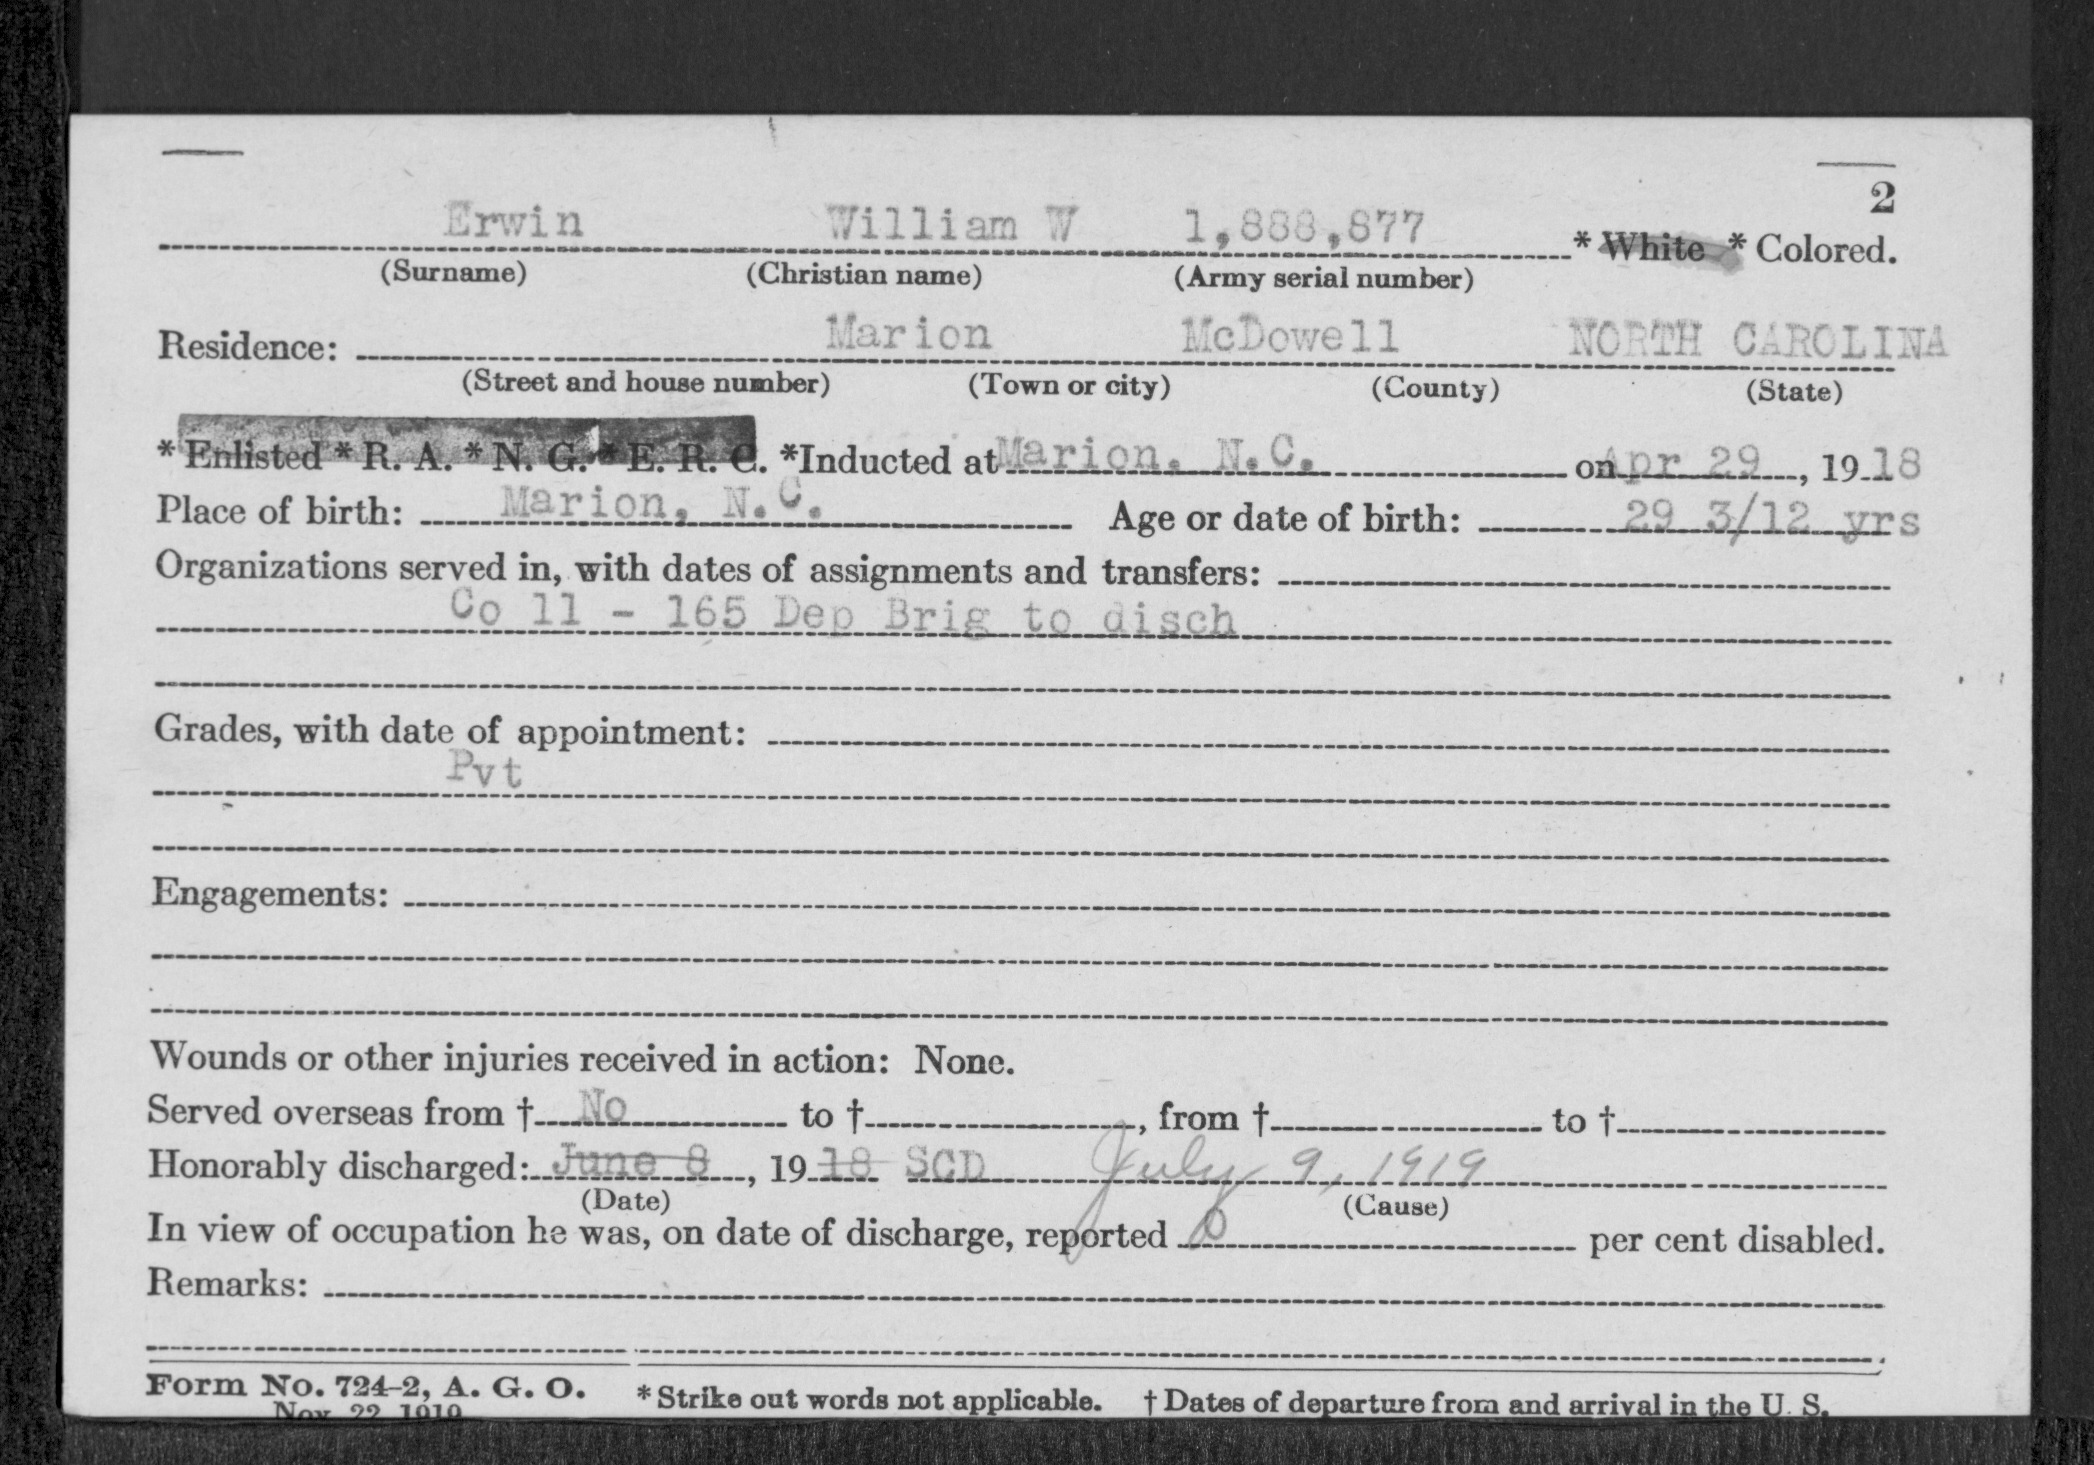 2
Erwin William W 1,888,877 * White * Colored.
(Surname) (Christian name) (Army serial number)
Residence: Marion McDowell NORTH CAROLINA
(Street and house number) (Town or city) (County) (State)
* Enlisted * R. A. * N. G. * E. R. C. *Inducted at Marion, N.C. on Apr 29, 1918
Place of birth: Marion, N.C. Age or date of birth: 29 3/12 yrs
Organizations served in, with dates of assignments and transfers:
Co 11 - 165 Dep Brig to disch
Grades, with date of appointment:
Pvt
Engagements:
Wounds or other injuries received in action: None.
Served overseas from † No to †, from † to †
Honorably discharged: June 8, 19 18 SCD July 9, 1919
(Date) (Cause)
In view of occupation he was, on date of discharge, reported 0 per cent disabled.
Remarks:
Form No. 724-2, A. G. O. * Strike out words not applicable. † Dates of departure from and arrival in the U. S.
Nov. 22, 1919